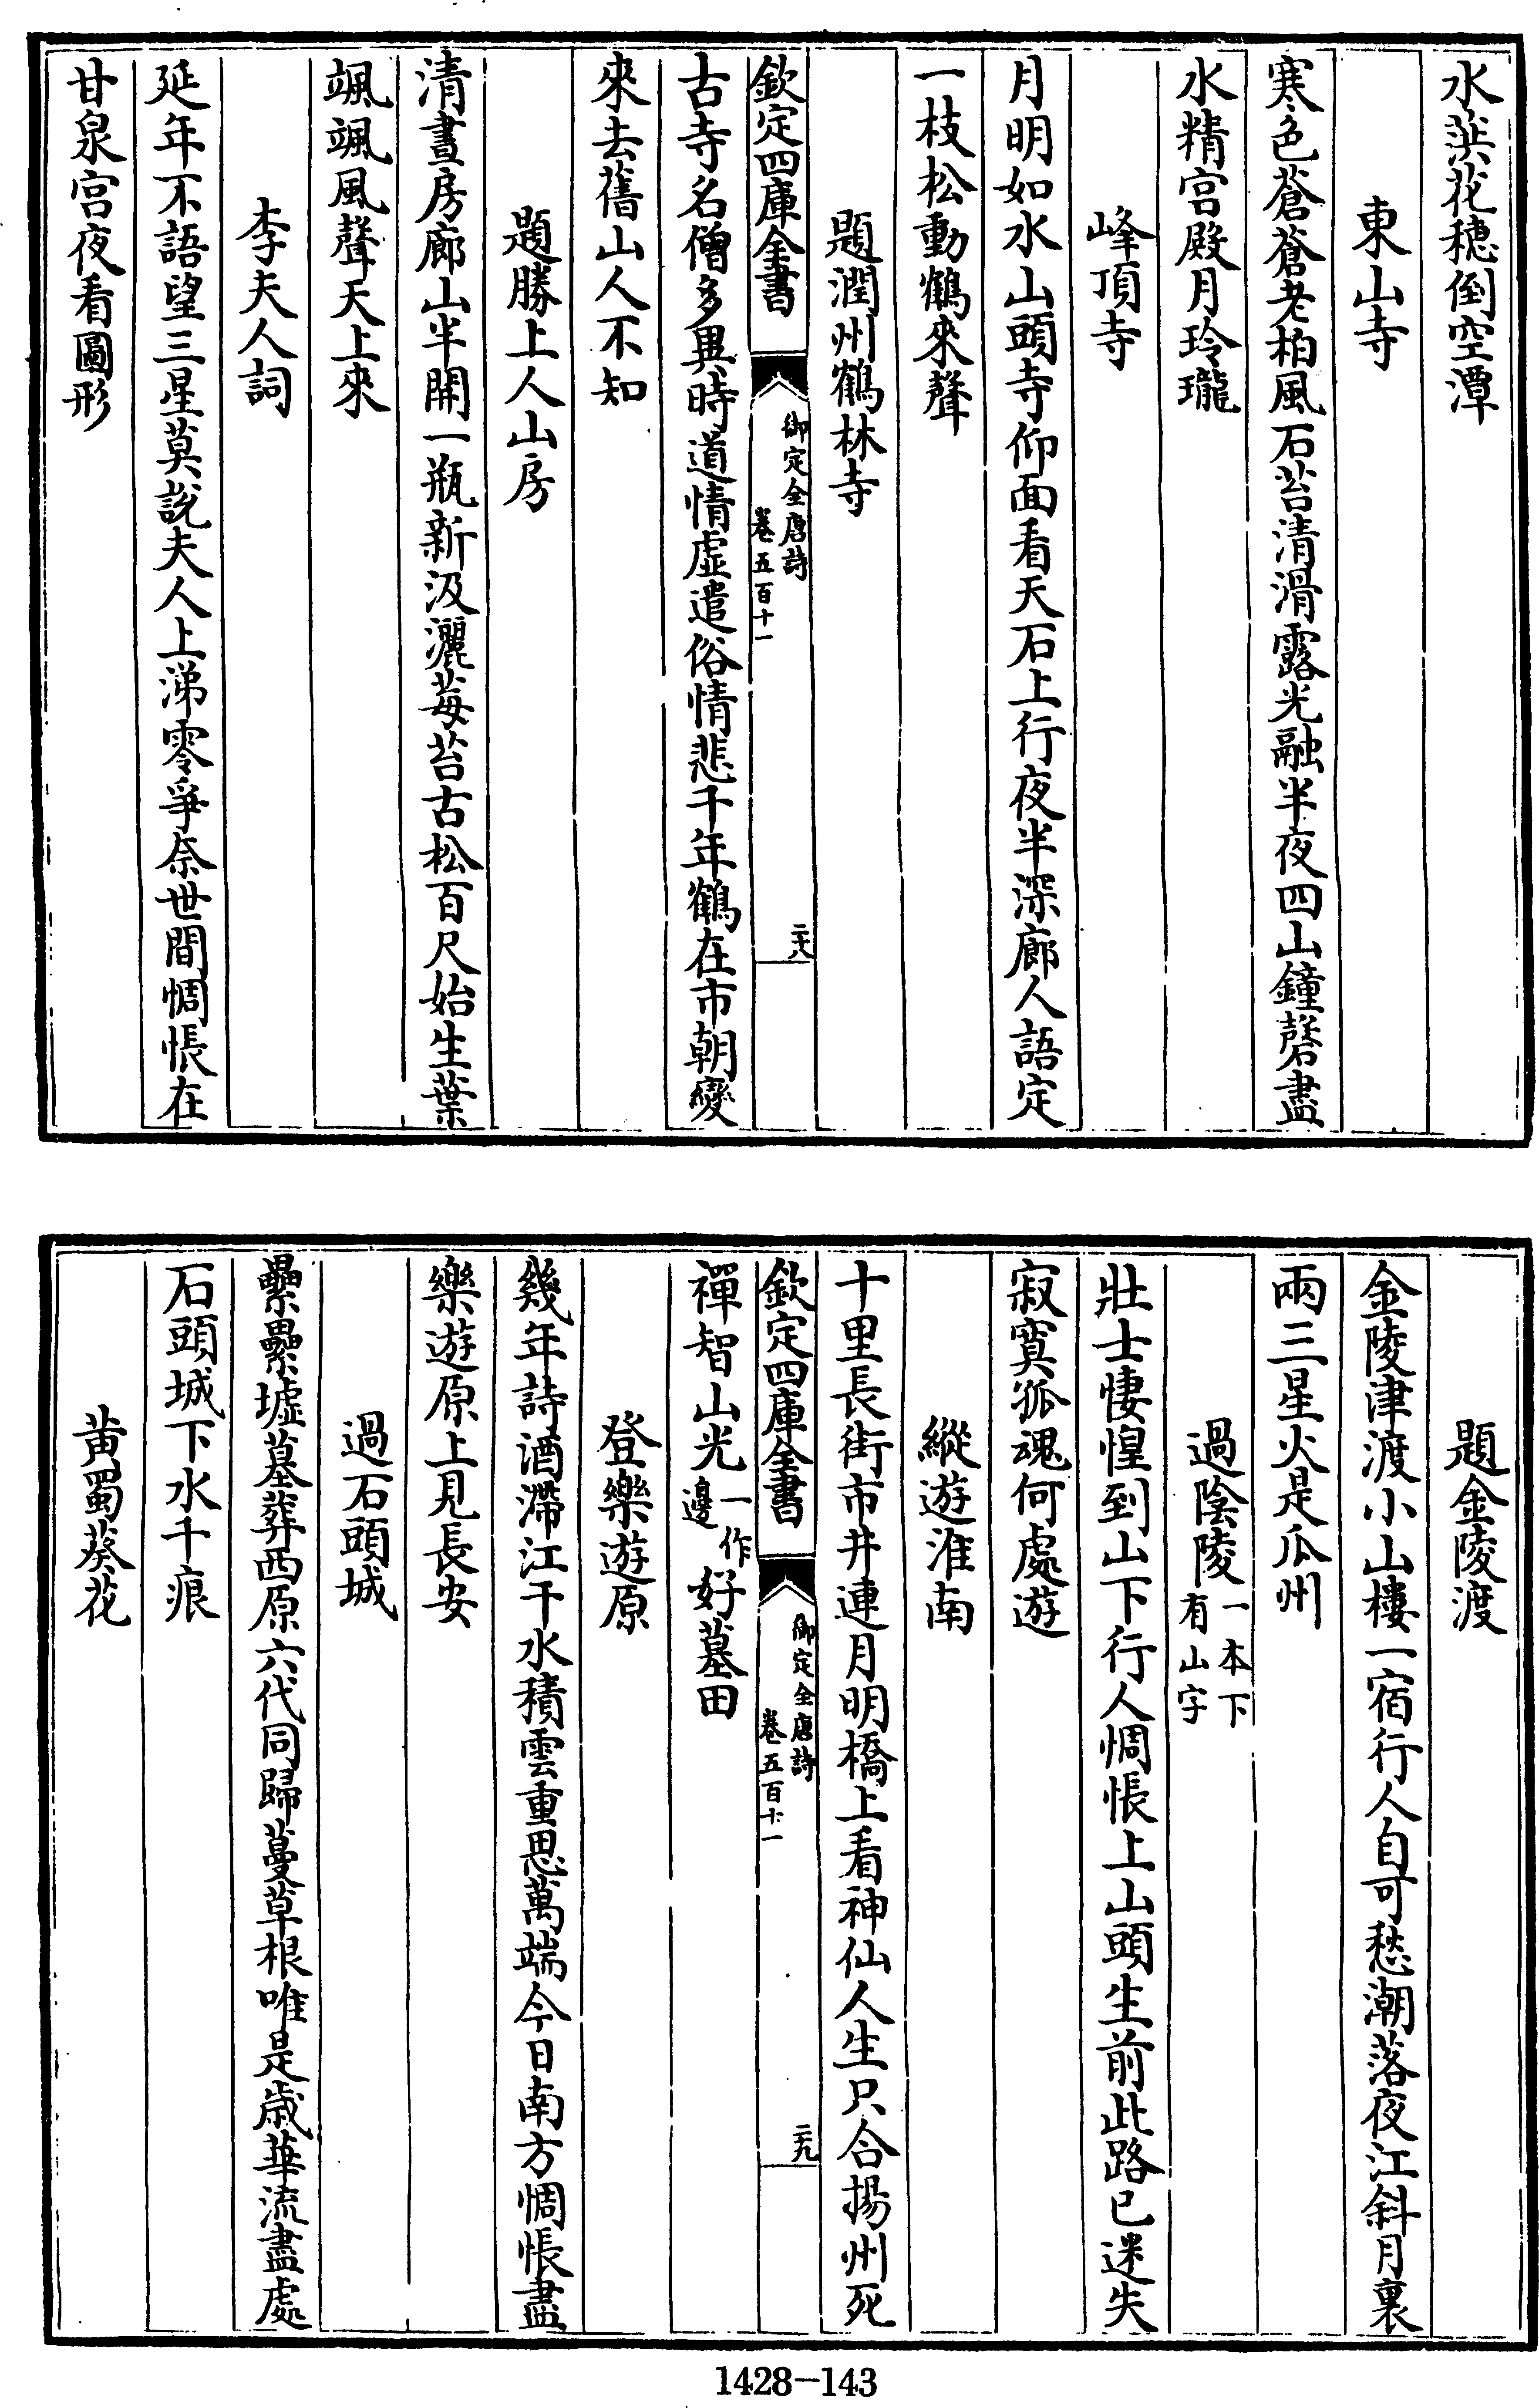 水葓花穗倒空潭
東山寺
寒色蒼蒼老柏風石苔清滑露光融半夜四山鐘磬盡
水精宮殿月玲瓏
峰頂寺
月明如水山頭寺仰面看天石上行夜半深廊人語定
一枝松動鶴來聲
題潤州鶴林寺
欽定四庫全書
御定全唐詩
卷五百十一
二十八
古寺名僧多異時道情虛遣俗情悲千年鶴在市朝變
來去舊山人不知
題勝上人山房
清晝房廊山半開一瓶新汲灑莓苔古松百尺始生葉
颯颯風聲天上來
李夫人詞
延年不語望三星莫說夫人上涕零爭奈世間惆悵在
甘泉宮夜看圖形
題金陵渡
金陵津渡小山樓一宿行人自可愁潮落夜江斜月裏
兩三星火是瓜州
過陰陵一本下有山字
壯士悽惶到山下行人惆悵上山頭生前此路已迷失
寂寞孤魂何處遊
縱遊淮南
十里長街市井連月明橋上看神仙人生只合揚州死
欽定四庫全書
御定全唐詩
卷五百十一
二十九
禪智山光一作邊好墓田
登樂遊原
幾年詩酒滯江干水積雲重思萬端今日南方惆悵盡
樂遊原上見長安
過石頭城
纍纍墟墓葬西原六代同歸蔓草根唯是歲華流盡處
石頭城下水千痕
黃蜀葵花
1428-143